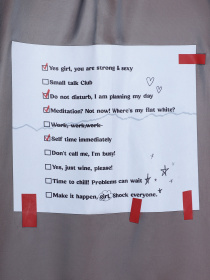 Yes girl, you are strong & sexy
Small talk Club
Do not disturb, I am planning my day
Meditation? Not now! Where's my flat white?
Work, work, work
Self time immediately
Don't call me, I'm busy!
Yes, just wine, please!
Time to chill! Problems can wait
Make it happen, girl. Shock everyone.